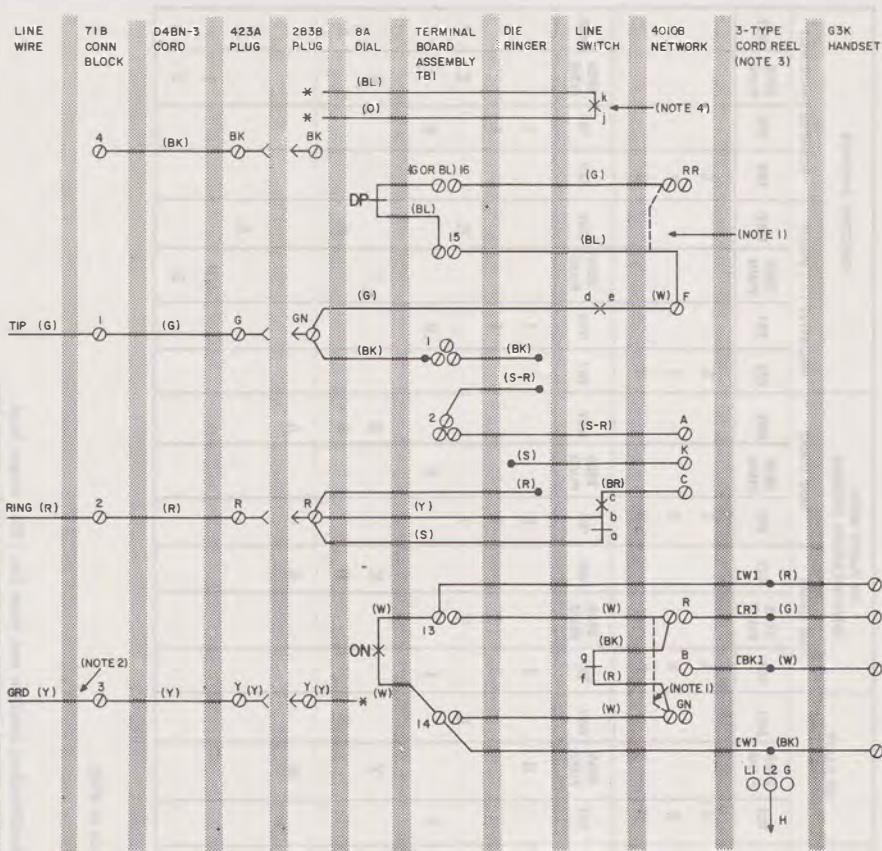 LINE WIRE
71B CONN BLOCK
D4BN-3 CORD
423A PLUG
283B PLUG
8A DIAL
TERMINAL BOARD ASSEMBLY TB1
DIE RINGER
LINE SWITCH
4010B NETWORK
3-TYPE CORD REEL (NOTE 3)
G3K HANDSET
(BL) k
* * (O) j (NOTE 4)
4 (BK) BK BK
(G OR BL) 16 (G) RR
DP
(BL) 15 (BL) (NOTE 1)
(G) d e (W) F
TIP (G) 1 (G) G GN
(BK) 1 (BK)
(S-R)
2 (S-R) A
(S) K
(R) (BR) C
c
RING (R) 2 (R) R R (Y) b
(S) a
[W] (R)
(W) 13 (W) R [R] (G)
ON (BK)
g B [BK] (W)
f (R)
(NOTE 2) (NOTE 1)
GRD (Y) 3 (Y) Y (Y) Y (Y) * (W)
14 (W) GN
[W] (BK)
L1 L2 G
H